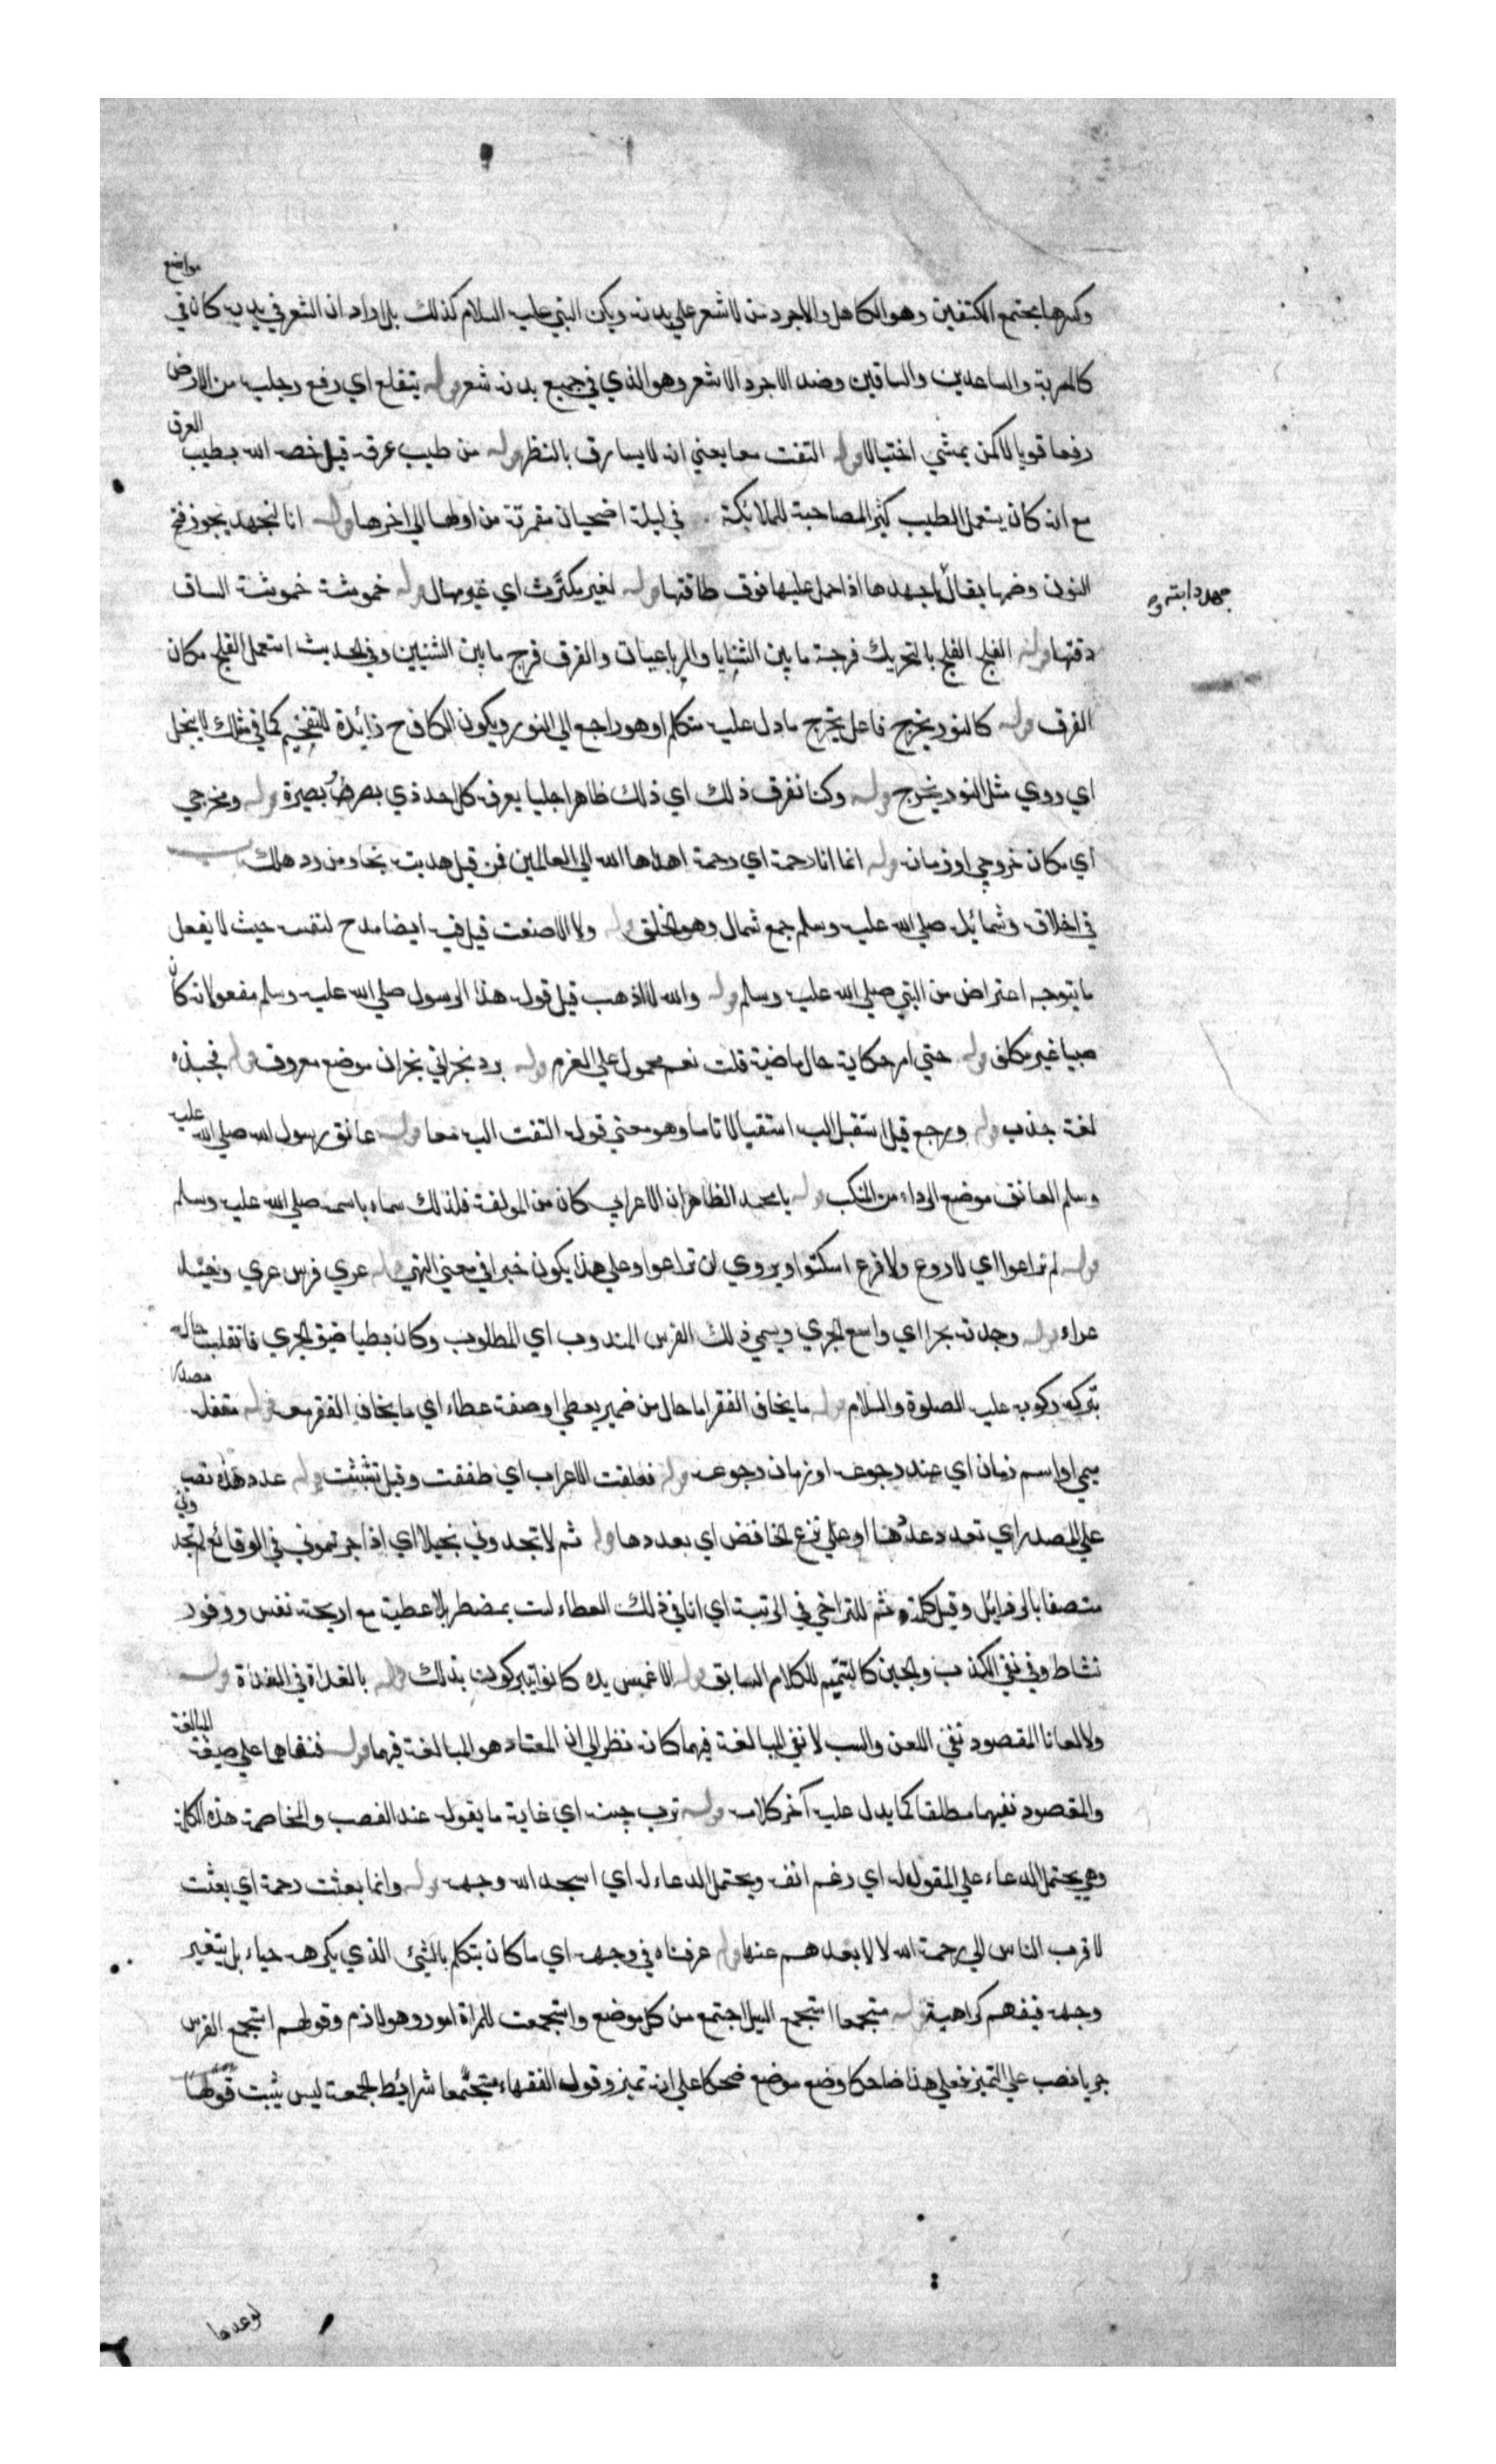 وكسرها مجتمع الكتفين وهو الكاهل والاجرد من لا شعر علي بدنه ويكن النبي عليه السلام كذلك بل اراد ان الشعر في بدنه كان في مواضع
كالمسربة والساعدين والساقين وضد الاجرد الاشعر وهو الذي في جميع بدنه شعر قوله يتقلع اي رفع رجليه من الارض
رفعا قويا لا كمن يمشي اختيالا قوله التفت معا يعني انه لا يسارق بالنظر قوله من طيب عرقه قيل خصه الله بطيب العرق
مع انه كان يستعمل الطيب كثير المصاحبة للملائكة في ليلة اضحيان مقمرة من اولها الي اخرها قوله انا لنجهد يجوز فتح
النون وضمها يقال اجهدها اذا حمل عليها فوق طاقتها قوله لغير مكترث اي غير مبال قوله خموشة خموشة الساق
جهد دابته و
دقتها قوله افلج الفلج بالتحريك فرجة ما بين الثنايا والرباعيات والفرق فرج ما بين الثنيين وفي الحديث استعمل الفلج مكان
الفرق قوله كالنور يخرج فاعل يخرج ما دل عليه متكلم او هو راجع الي النور ويكون الكاف ح زائدة للتفخيم كما في مثلك لا يبخل
اي روي مثل النور يخرج قوله وكنا نعرف ذلك اي ذلك ظاهرا جليا يعرفه كل احد ذي بصر وبصيرة قوله ومخرجي
اي مكان خروجي او زمانه قوله انما انا رحمة اي رحمة اهداها الله الي العالمين فمن قبل هديته نجا ومن رد هلك
في اخلاقه وشمائله صلي الله عليه وسلم جمع شمال وهو الخلق قوله ولا الا صنعت قيل فيه ايضا مدح لنفسه حيث لا يفعل
ما يتوجه اعتراض من النبي صلي الله عليه وسلم قوله والله لا اذهب قيل قوله هذا الرسول صلي الله عليه وسلم مفعو لانه كان
صبيا غير مكلف قوله حتي امر حكاية حال ماضية قلت نعم محمول علي العزم قوله برد نجراني نجران موضع معروف قوله فجبذه
لغة جذب قوله ورجع قيل استقبل اليه استقبالا تاما وهو معني قوله التفت اليه معا قوله عاتق رسول الله صلي الله عليه
وسلم العاتق موضع الرداء من المنكب قوله يا محمد الظاهر ان الاعرابي كان من المولفة فلذلك سماه باسمه صلي الله عليه وسلم
قوله لم تراعوا اي لا روع ولا فزع اسكتوا ويروي لن تراعوا وعلي هذا يكون خبرا في معني النهي قوله عري فرس عري وخيل
عراء قوله وجدته بحرا اي واسع الجري ويسمي ذلك الفرس المندوب اي المطلوب وكان بطيا ضيق الجري فانقلب حاله
بتركة ركوبه عليه الصلوة والسلام قوله ما يخاف الفقر اما حال من ضمير يعطي او صفة عطاء اي ما يخاف الفقر معه قوله مقفله مصدر
ميمي او اسم زمان اي عند رجوعه او زمان رجوعه قوله فعلقت الاعراب اي طفقت وقيل تشبثت قوله عدد هذه نصب
علي المصدر اي تعدد عد هذا او علي نزع الخافض اي بعددها قوله ثم لا تجدوني بخيلا اي اذا جربتموني في الوقائع لم تجدوني
متصفا بالرذائل وقيل كلمة ثم للتراخي في الرتبة اي انا في ذلك العطاء لست بمضطر بل اعطيه مع اريحية نفس ووفور
نشاط وفي نفي الكذب والجبن كالتتميم للكلام السابق قوله الا غمس يده كانوا تبركون بذلك قوله بالغداة في الغداة قوله
ولا لعانا المقصود نفي اللعن والسب لا نفي المبالغة فيهما كانه نظر الي ان المعتاد هو المبالغة فيهما قوله فنفاها علي صيغة المبالغة
والمقصود نفيهما مطلقا كما يدل عليه آخر كلامه قوله ترب جبينه اي غاية ما يقوله عند الغضب والمخاصمة هذه الكلمة
وهي يحتمل الدعاء علي المقول له اي رغم انفه ويحتمل الدعاء له اي اسجد الله وجهه قوله وانما بعثت رحمة اي بعثت
لاقرب الناس الي رحمة الله لا لابعدهم عنها قوله عرفناه في وجهه اي ما كان يتكلم بالشئ الذي يكرهه حياء بل يتغير
وجهه فيفهم كراهيته قوله مستجمعا استجمع السيل اجتمع من كل موضع واستجمعت للمرأة امور وهو لازم وقولهم استجمع الفرس
جريا نصب علي التميز فعلي هذا ضاحكا وضع موضع ضحكا علي انه تميز وقول الفقهاء مستجمعا شرائط الجمعة ليس يثبت قوله
لوعدها